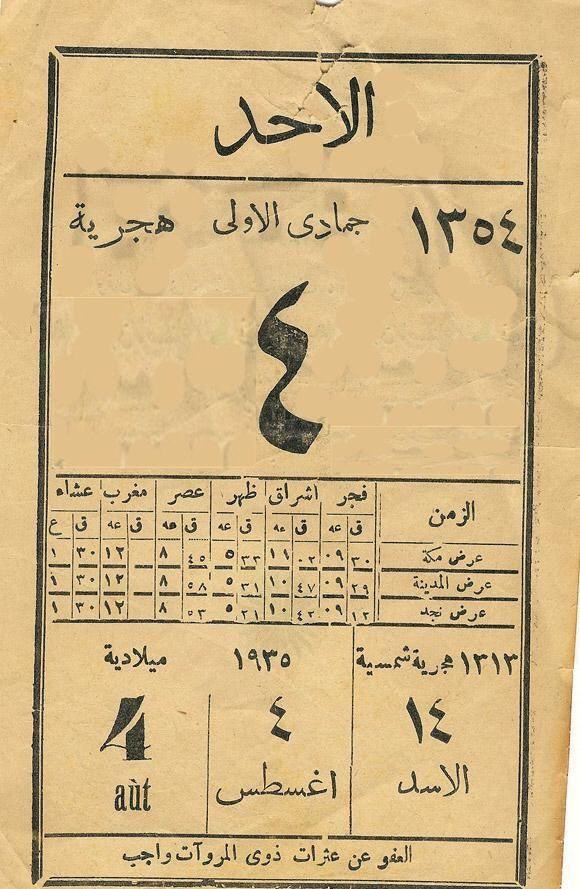 الاحد
١٣٥٤ جمادى الاولى هجرية
٤
الزمن فجر اشراق ظهر عصر مغرب عشاء
ق عه ق عه ق عه ق عه ق عه ق ع
عرض مكة ٣٠ ٠٩ ٠٢ ١١ ٣٣ ٥ ٤٥ ٨ ١٢ ٣٠ ١
عرض المدينة ٢٩ ٠٩ ٤٧ ١٠ ٣١ ٥ ٥٨ ٨ ١٢ ٣٠ ١
عرض نجد ١٢ ٠٩ ٤٢ ١٠ ٢١ ٥ ٥٣ ٨ ١٢ ٣٠ ١
١٣١٣ هجرية شمسية ١٩٣٥ ميلادية
١٤ ٤ 4
الاسد اغسطس aùt
العفو عن عثرات ذوى المروآت واجب